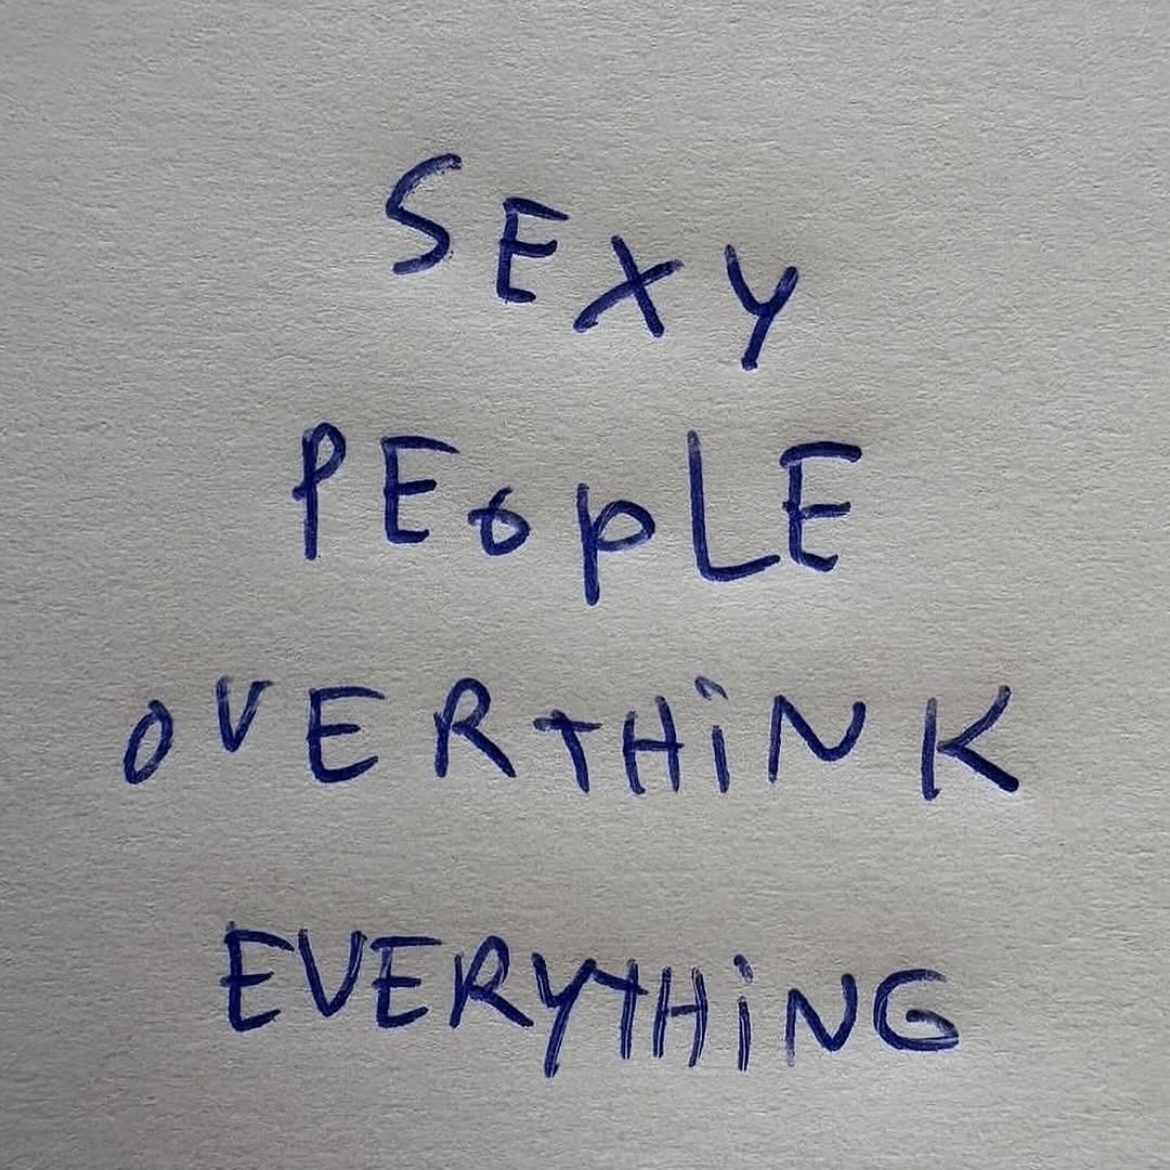 SEXY
PEopLE
OVERTHiNK
EVERYTHiNG